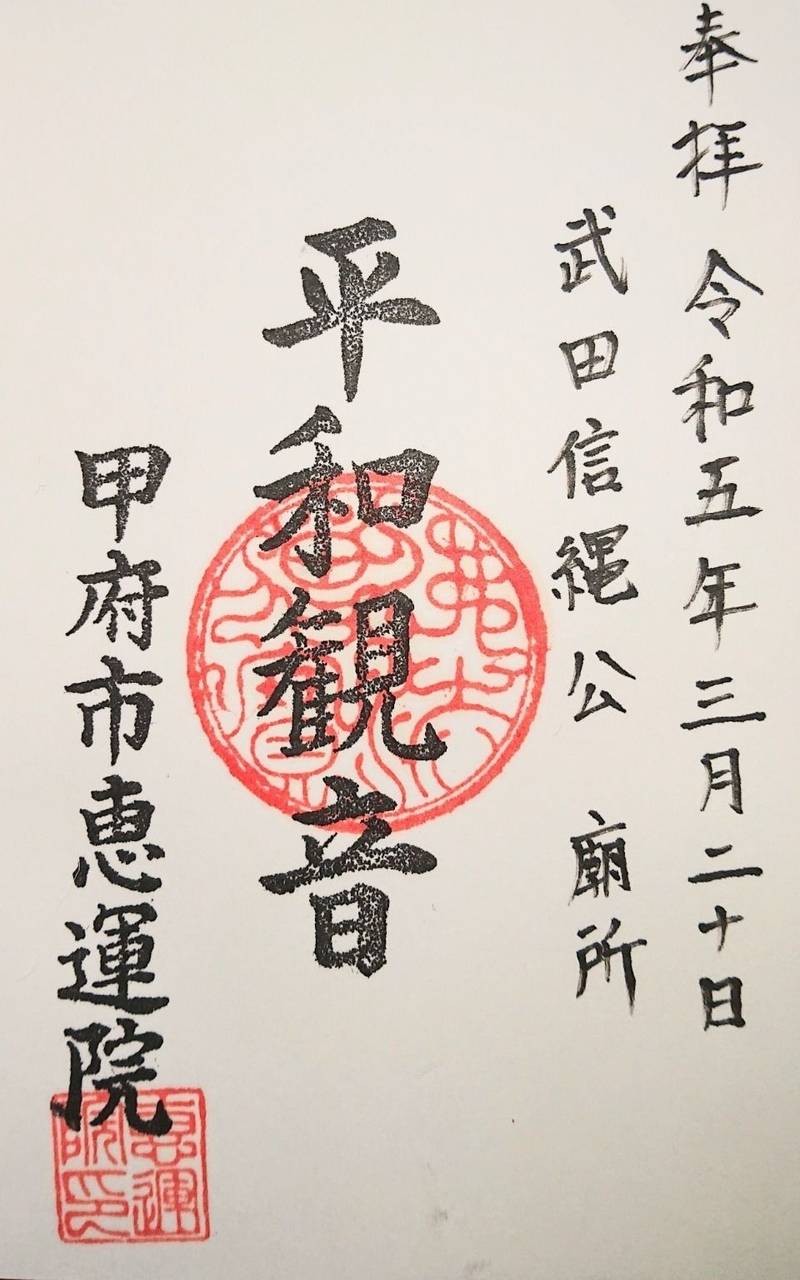 奉拝 令和五年三月二十日
武田信縄公 廟所
平和観音
甲府市恵運院
恵運院印